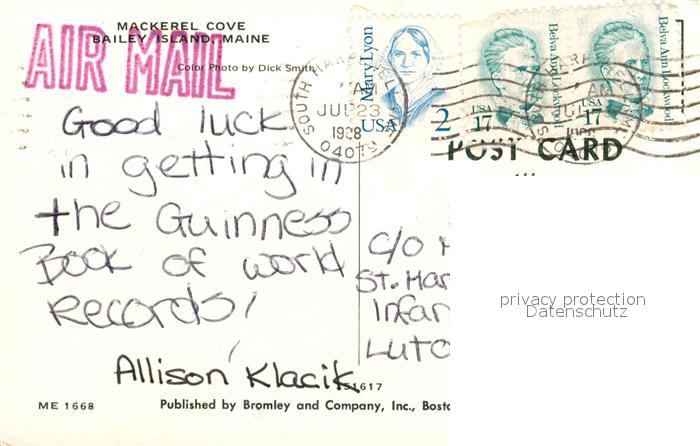 MACKEREL COVE
BAILEY ISLAND, MAINE
AIR MAIL
Color Photo by Dick Smith
Mary Lyon
USA 2
Belva Ann Lockwood
USA 17
Belva Ann Lockwood
USA 17
SOUTH HARPSWELL
JUL 23
1988
04079
POST CARD
Good luck
in getting in
the Guinness
Book of world
Records!
Allison Klacik
C/O
St. Mar
Infan
Luto
privacy protection
Datenschutz
51617
ME 1668
Published by Bromley and Company, Inc., Bosto